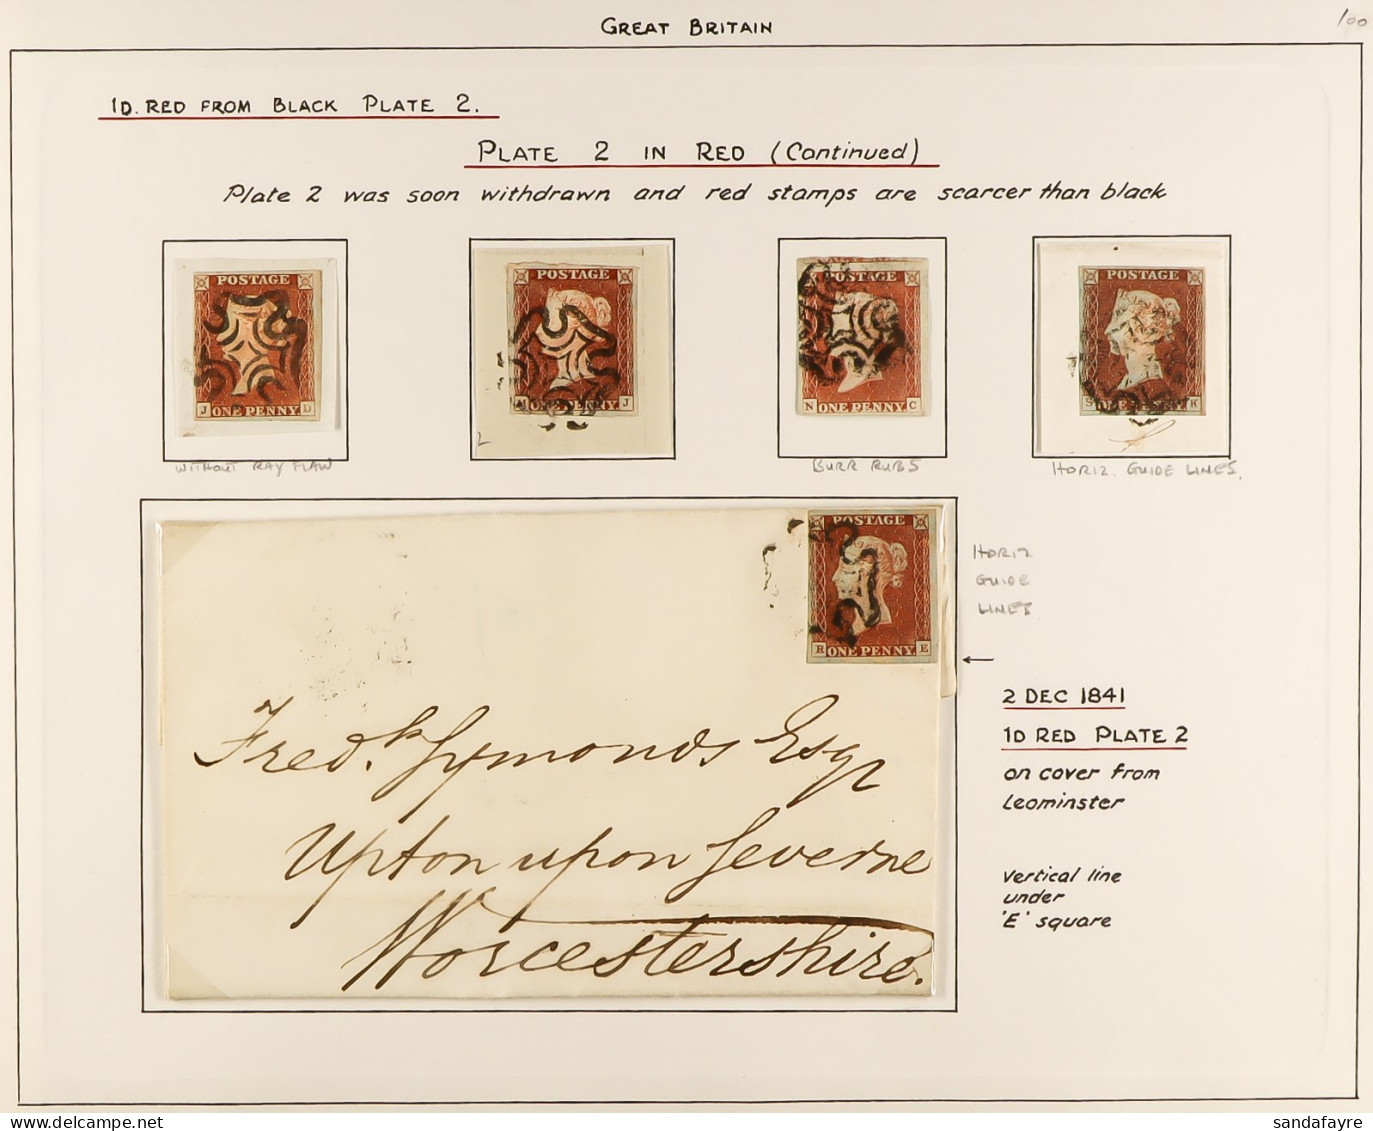 GREAT BRITAIN
100
1D. RED FROM BLACK PLATE 2.
PLATE 2 IN RED (Continued)
Plate 2 was soon withdrawn and red stamps are scarcer than black
POSTAGE
J ONE PENNY. D
POSTAGE
ONE PENNY J
2
POSTAGE
N ONE PENNY C
POSTAGE
S ONE PENNY K
WITHOUT RAY FLAW
BURR RUBS
HORIZ. GUIDE LINES.
POSTAGE
R ONE PENNY. E
HORIZ
GUIDE
LINES
Fredk. Symonds Esqr
Upton upon Severne
Worcestershire.
2 DEC 1841
1D RED PLATE 2
on cover from
Leominster
vertical line
under
'E' square
sandafayre